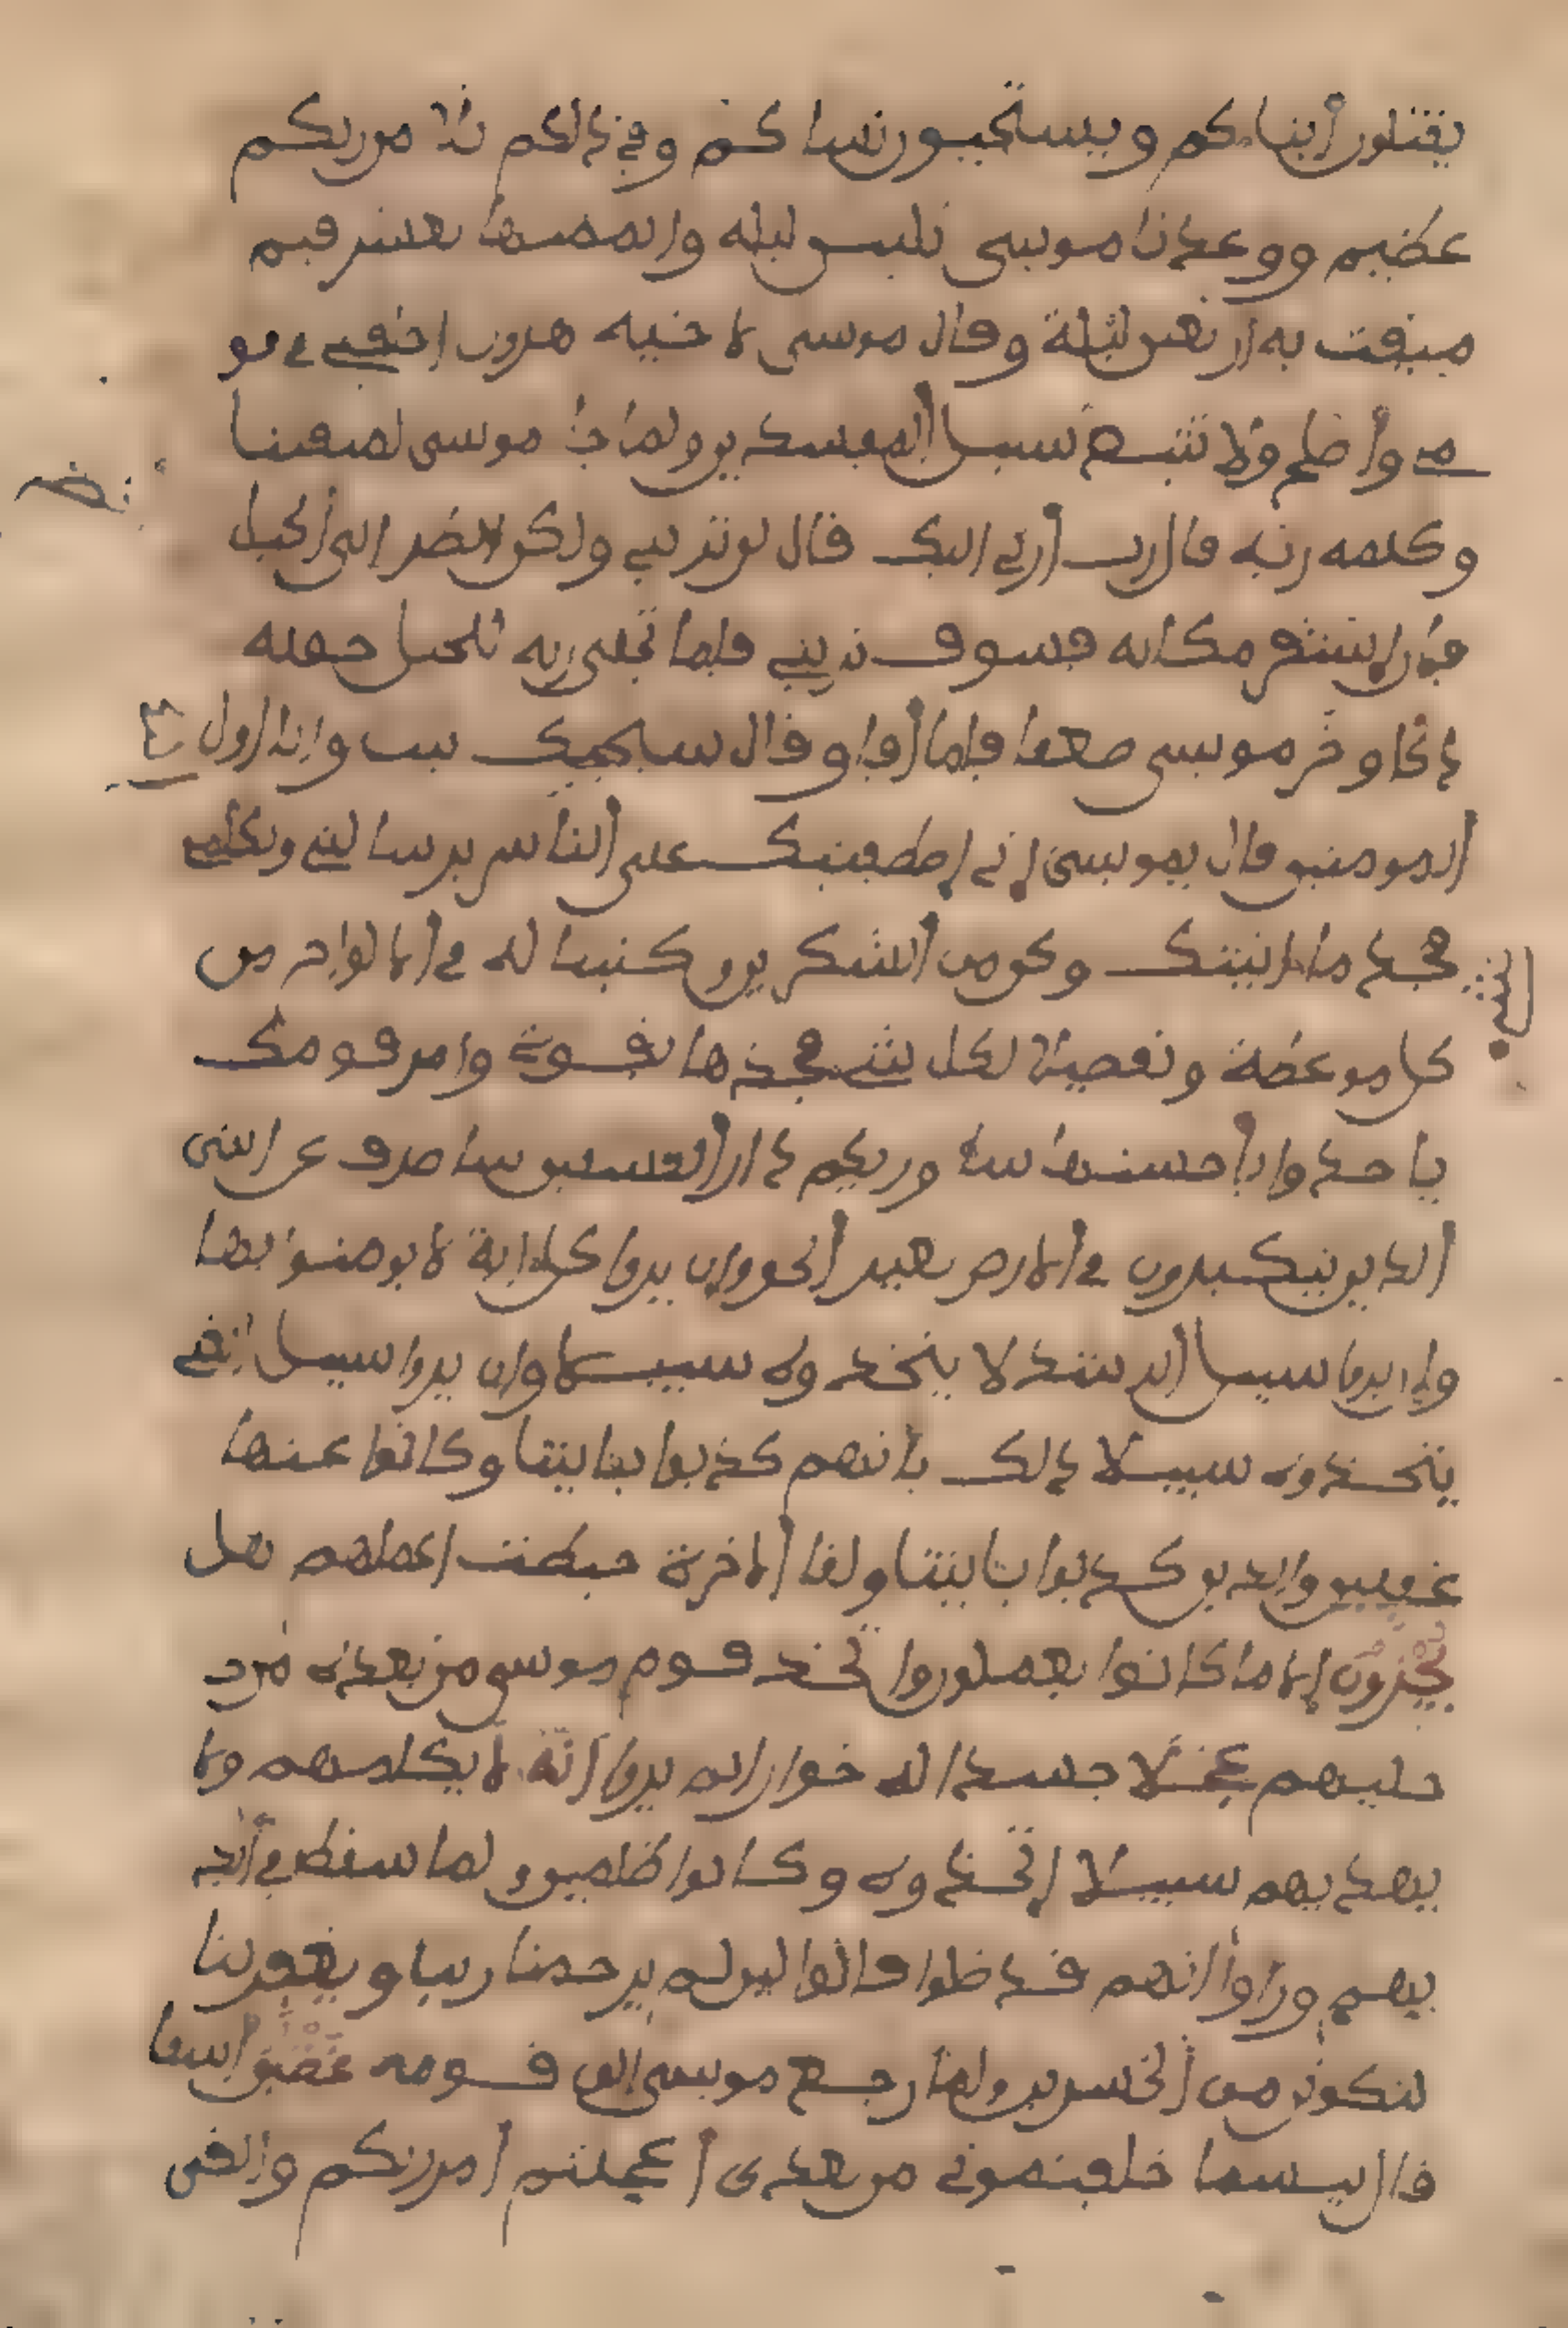 يقتلون أبناءكم ويستحيون نساكم وفي ذالكم بلا من ربكم
عظيم ووعدنا موسى ثلثين ليلة وأتممنها بعشر فتم
ميقت ربه أربعين ليلة وقال موسى لاخيه هرون اخلفني في قو
مي وأصلح ولا تتبع سبيل ألمفسدين ولما جا موسى لميقتنا
وكلمه ربه قال رب أرني اليك قال لن تريني ولكن انظر الى ألجبل
فإن إستقر مكانه فسوف تريني فلما تجلى ربه للجبل جعله
دكا وخر موسى صعقا فلما أفاق قال سبحنك تبت وإنا أول
ألمومنين قال يموسى إني إصطفيتك على ألناس برسالتي وبكلمي
فخذ ما اتيتك وكن من ألشكرين وكتبنا له في ألالواح من
كل موعظة وتفصيلا لكل شي فخذها بقوة وامر قومك
ياخذوا بأحسنها ساوريكم دار ألفسقين ساصرف عن ايتى
ألذين يتكبرون في ألارض بغير ألحق وإن يروا كل اية لا يومنوا بها
وإن يروا سبيل ألرشد لا يتخذوه سبيلا وإن يروا سبيل ألغي
يتخذوه سبيلا ذلك بأنهم كذبوا بايتنا وكانوا عنها
غفلين والذين كذبوا بايتنا ولقا ألاخرة حبطت اعملهم هل
يجزون إلا ما كانوا يعملون واتخذ قوم موسى من بعده من
حليهم عجلا جسدا له خوار الم يروا أنه لا يكلمهم ولا
يهديهم سبيلا إتخذوه وكانوا ظلمين ولما سقط في أيد
يهم وراوا أنهم قد ضلوا قالوا لين لم يرحمنا ربنا ويغفر لنا
لنكونن من ألخسرين ولما رجع موسى الى قومه غضبن أسفا
قال بيسما خلفتموني من بعدى أعجلتم أمر ربكم وألقى